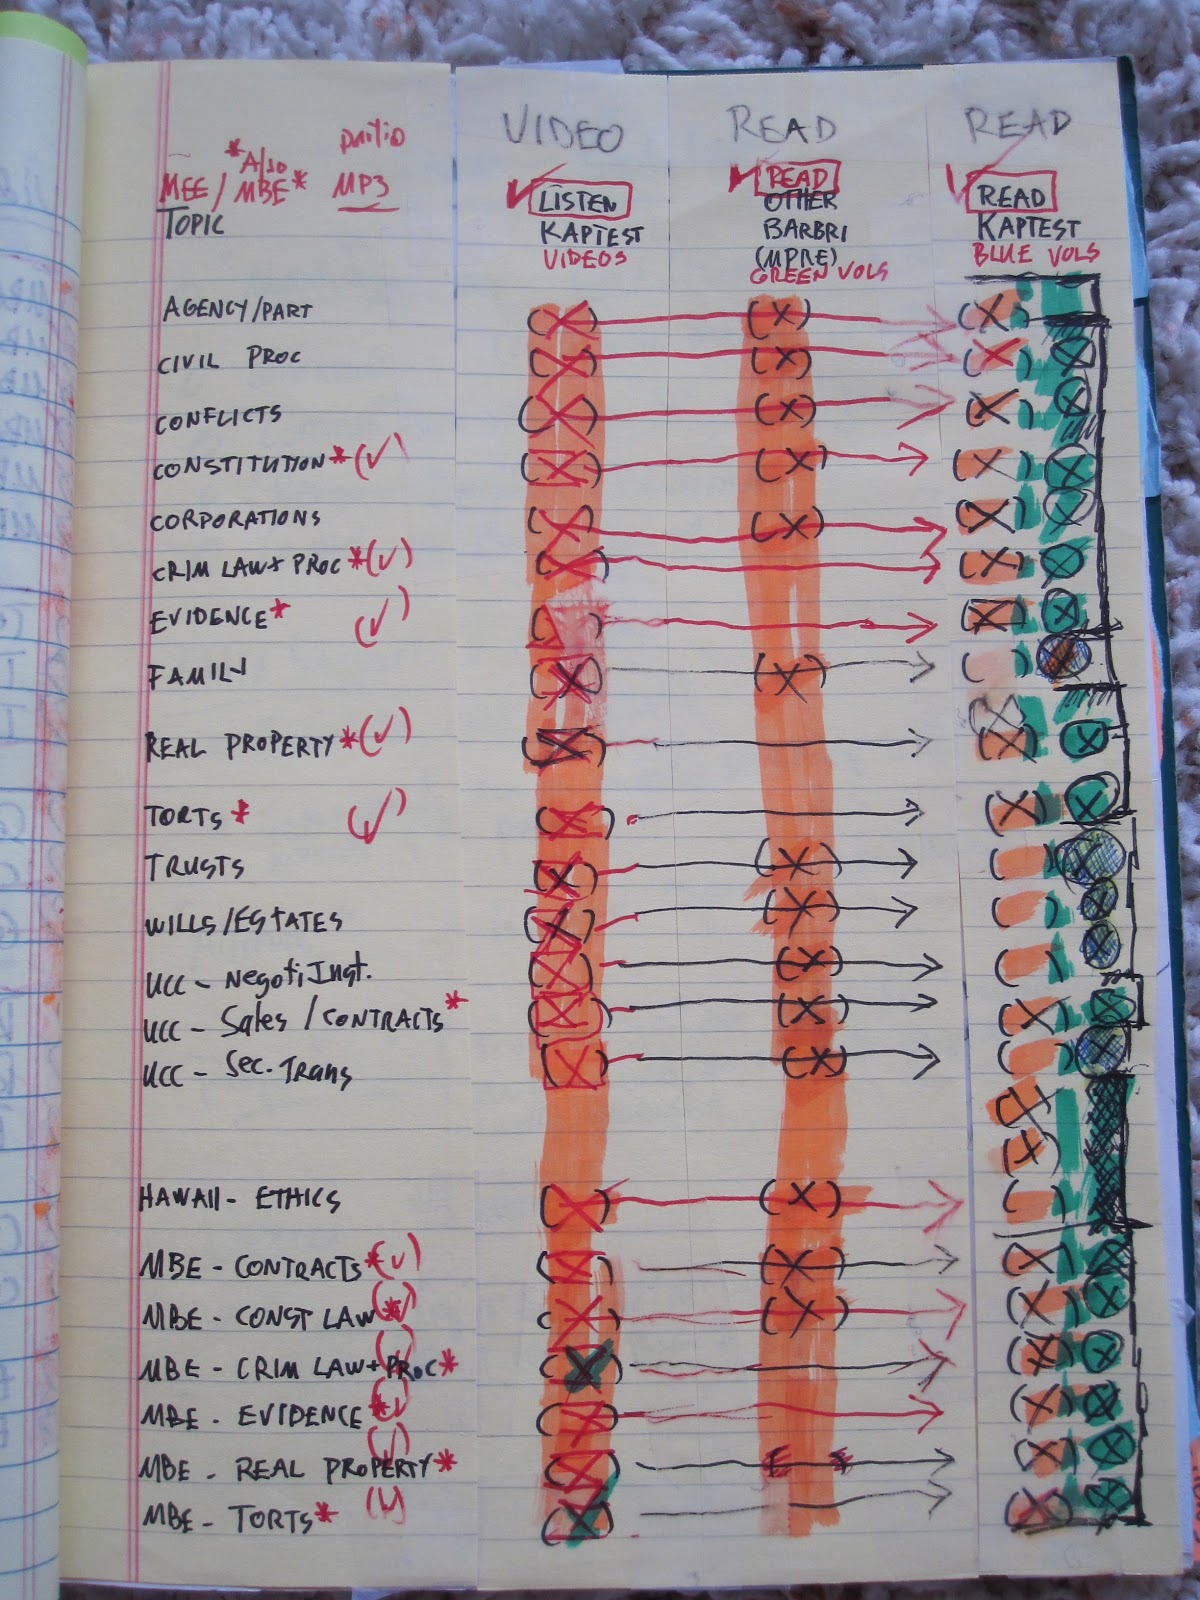 VIDEO READ READ
*A/so MP3
MEE / MBE*
TOPIC
LISTEN
KAPTEST
VIDEOS
READ
OTHER
BARBRI
(MPRE)
GREEN VOLS
READ
KAPTEST
BLUE VOLS
AGENCY/PART (X) (X) (X)
CIVIL PROC (X) (X) (X)
CONFLICTS (X) (X) (X)
CONSTITUTION* (✓) (X) (X) (X)
CORPORATIONS (X) (X) (X)
CRIM LAW + PROC *(✓) (X) (X)
EVIDENCE* (✓) (X)
FAMILY (X) (X) ( )
REAL PROPERTY *(✓) (X) (X)
TORTS * (✓) (X) (X)
TRUSTS (X) (X) ( )
WILLS/ESTATES (X) (X) ( )
UCC - Negoti Inst. (X) (X) ( )
UCC - Sales / CONTRACTS* (X) (X) (X)
UCC - Sec. Trans (X) (X) ( )
(X)
(X)
HAWAII - ETHICS (X) (X) ( )
MBE - CONTRACTS *(✓) (X) (X) (X)
MBE - CONST LAW (*) (X) (X) (X)
MBE - CRIM LAW + PROC* (X) (X)
MBE - EVIDENCE * (✓) (X) (X)
MBE - REAL PROPERTY* (✓) (X) (X)
MBE - TORTS* (✓) (X) (X)